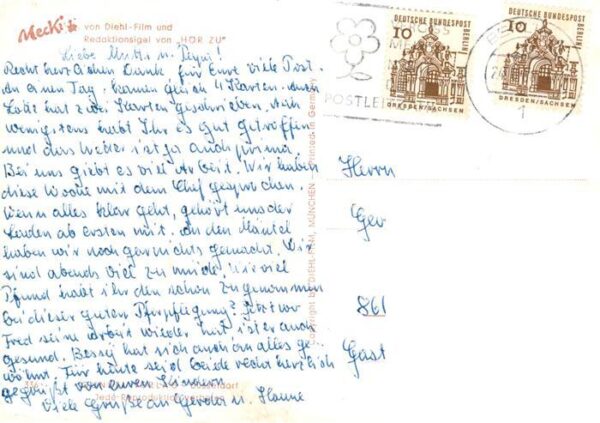 Mecki von Diehl-Film und
Redaktionsigel von „HÖR ZU"
Liebe Mutti u. Papi!
Recht herzlichen Dank für Eure viele Post.
An einen Tag kamen gleich 4 Karten. Auch
hat zwei Karten geschrieben. Na
wenigstens habt Ihr es gut getroffen
und das Wetter ist ja auch prima.
Bei uns giebt es viel Arbeit. Wir haben
diese Woche mit dem Chef gesprochen.
Wenn alles klar geht, gehört uns der
Laden ab ersten mit. An den Mäntel
haben wir noch garnichts gemacht. Wir
sind abends viel zu müde. Wie viel
Pfund habt ihr den schon zugenommen
bei dieser guten Pflege? Jetzt wo
Fred seine Arbeit wieder hat ist er auch
gesund. Bessy hat sich auch an alles ge
wöhnt. Für heute seid beide recht herzlich
gegrüßt von euren Kindern
Viele Grüße an Gerda u. Hanne
Copyright by DIEHL-FILM, MÜNCHEN
Printed in Germany
DEUTSCHE BUNDESPOST BERLIN
10
DRESDEN/SACHSEN
DEUTSCHE BUNDESPOST BERLIN
10
DRESDEN/SACHSEN
1
Herrn
861
Gast